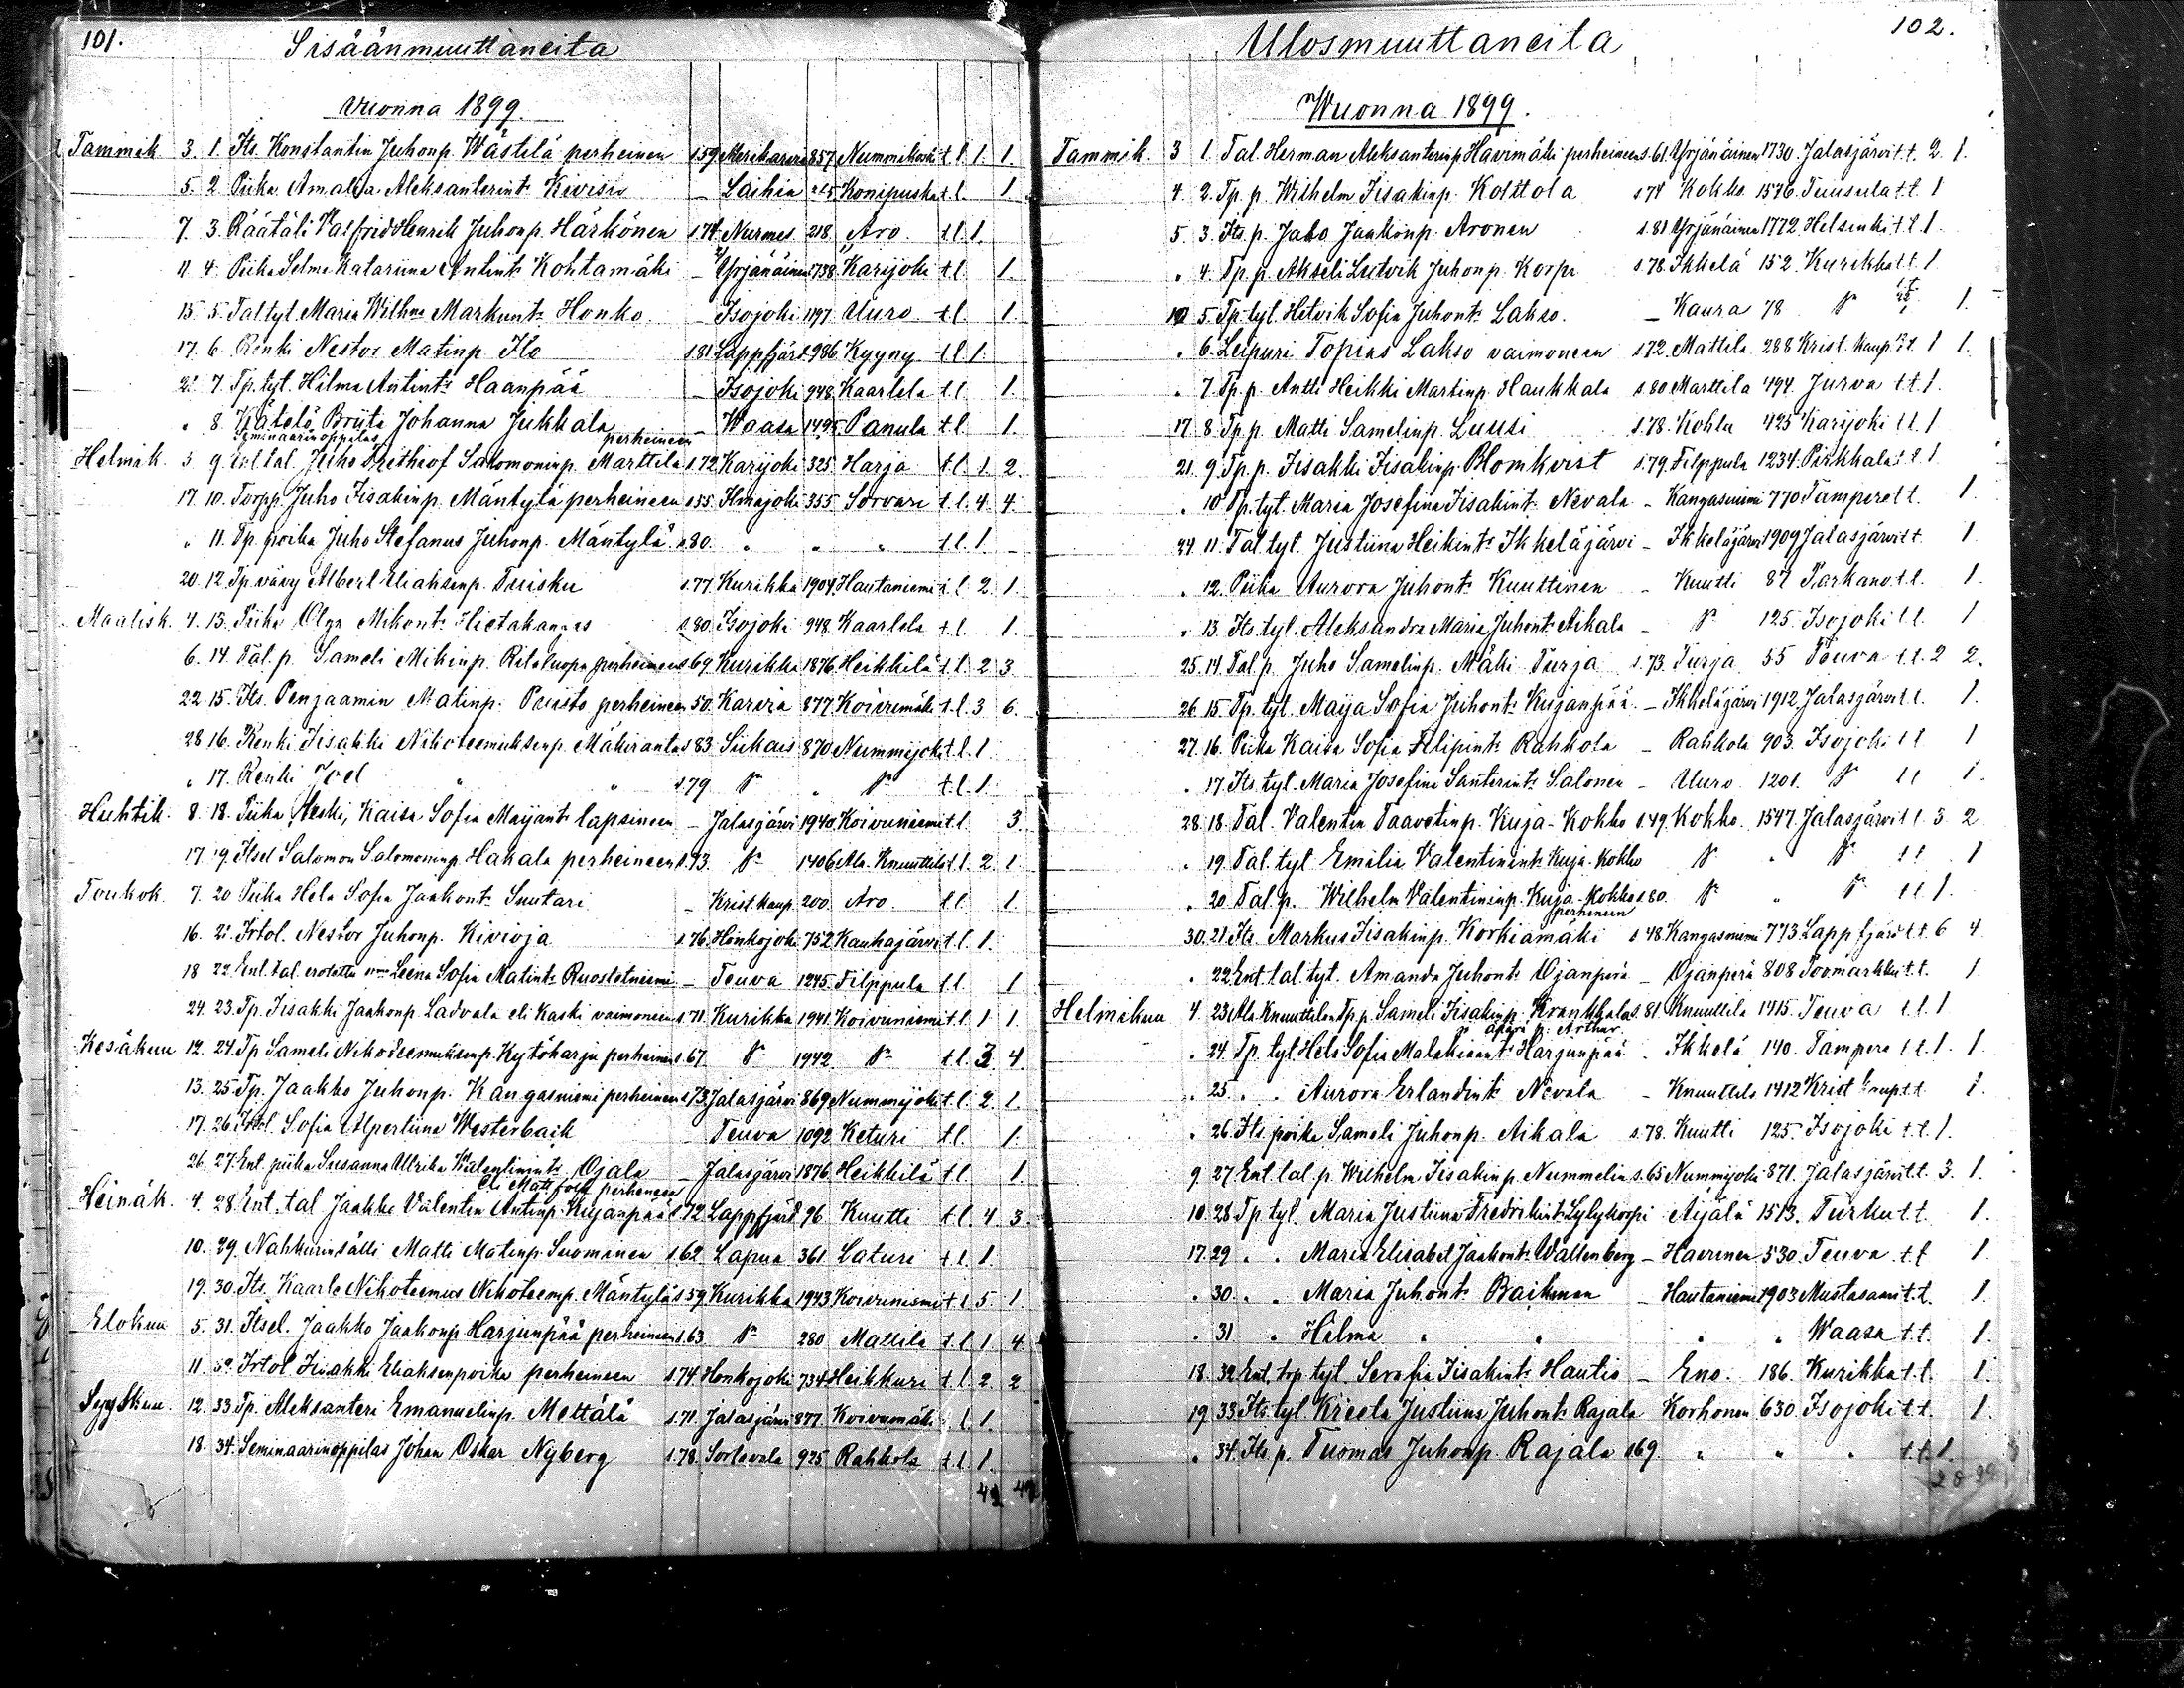 101.
Sisäänmuuttaneita
Vuonna 1899.
Tammik 3. 1. Its. Konstantin Juhonp. Wästilä perheineen s.59 Merikarvia 857 Nummikoski t.l. 1. 1.
5. 2 Piika Amalia Aleksanterint. Kivisiv — Laihia Konipuska t.l. 1.
7. 3. Räätäli Valfrid Henrik Juhonp. Härkönen s.74 Nurmes 218 Aro t.l. 1.
11 4. Piika Selma Katariina Antint. Kohtamäki — Yrjänäinen 1738 Karijoki t.l. 1.
15. 5. Tal.tyt. Maria Wilh:na Markunt. Honko — Isojoki 1197 Uuro t.l. 1.
17. 6. Renki Nestor Matinp. Ilo s.81 Lappfjärd 986 Kyyny t.l. 1.
21 7. Tp.tyt. Hilma Antint. Haanpää — Isojoki 948 Kaarlela t.l. 1.
" 8. Kätilö Briita Johanna Jukkala — Waasa 1495 Panula t.l. 1.
Seminaarinoppilas perheineen
Helmik. 3 9. Ent.tal. Juho Frithiof Salomoninp. Marttila s.72 Karijoki 325 Harja t.l. 1. 2.
17. 10. Torpp. Juho Iisakinp. Mäntylä perheineen s.55 Ilmajoki 355 Sorvari t.l. 4. 4.
" 11. Tp. poika Juho Stefanus Juhonp. Mäntylä s.80. " " " t.l. 1.
20. 12. Tp. vävy Albert Eliaksenp. Tuisku s.77. Kurikka 1904 Hautaniemi t.l. 2. 1.
Maalisk. 4. 13. Piika Olga Mikont. Hietakangas s.80 Isojoki 948 Kaarlela t.l. 1.
6. 14. Tal.p. Sameli Mikinp. Ritoluopa perheineen s.69 Kurikka 1876 Heikkilä t.l. 2 3
22. 15. Its. Penjaamin Matinp. Puisto perheineen 50. Karvia 877 Koivumäki t.l. 3 6.
28 16. Renki Iisakki Nikoteemuksenp. Mäkiranta s.83 Siikais 870 Nummijoki t.l. 1
" 17. Renki Joel " " s.79 " " t.l. 1.
Huhtik. 8. 18. Piika Heski, Kaisa Sofia Maijant. lapsineen — Jalasjärvi 1940 Koivuniemi t.l. 3.
17. 19. Itsel Salomon Salomoninp. Hakala perheineen s.73. 1406 Ala-Knuuttila t.l. 2. 1.
Toukok. 7. 20 Piika Hela Sofia Jaakont. Suutari — Krist.kaup. 200 Aro t.l. 1.
16. 21. Irtol. Nestor Juhonp. Kivioja s.76. Honkojoki 752 Kauhajärvi t.l. 1.
18 22. Ent.tal. erotettu vmo Leena Sofia Matint. Ruostetniemi — Teuva 1245 Filppula t.l. 1
24. 23. Tp. Iisakki Jaakonp. Ladvala eli Kaski vaimoneen s.71. Kurikka 1941. Koivuniemi t.l. 1 1.
Kesäkuu 12. 24. Tp. Sameli Nikodeemuksenp. Kytöharju perheineen s.67. 1942 t.l. 3 4.
13. 25. Tp. Jaakko Juhonp. Kangasniemi perheineen s.73. Jalasjärvi 869 Nummijoki t.l. 2. 1.
17. 26. Irtol. Sofia Alpertiina Westerback — Teuva 1092 Keturi t.l. 1.
26. 27. Ent. piika Susanna Ulrika Valentinint. Ojala — Jalasjärvi 1876 Heikkilä t.l. 1.
eli Mattfolk perheineen
Heinäk. 4. 28. Ent. tal Jaakko Valentin Antinp. Kujanpää s.72 Lappfjärd 96 Kuutti t.l. 4 3.
10. 29. Nahkurinsälli Matti Matinp. Suomanen s.62 Lapua 361 Laturi t.l. 1.
19. 30. Its. Kaarle Nikoteemus Nikoteemp. Mäntylä s.59. Kurikka 1943 Koivuniemi t.l. 5. 1.
Elokuu 5. 31. Itsel. Jaakko Jaakonp. Harjunpää perheineen s.63 280 Mattila t.l. 1 4.
11. 32. Irtol Iisakki Eliaksenpoika perheineen s.74. Honkojoki 734 Heikkuri t.l. 2. 2.
Syyskuu. 12. 33. Tp. Aleksanteri Emanuelinp. Mettälä s.71. Jalasjärvi 877. Koivumäki t.l. 1.
18. 34. Seminaarinoppilas Johan Oskar Nyberg s.78. Sortavala 925 Rahkola t.l. 1.
102.
Ulosmuuttaneita
Wuonna 1899.
Tammik. 3 1. Tal. Herman Aleksanterinp. Havimäki perheineen s.61. Yrjänäinen 1730. Jalasjärvi t.t. 2. 1.
4. 2. Tp. p. Wilhelm Iisakinp. Kolttola s.74 Kokko. 1576. Tuusula t.t. 1
5. 3. Its. p. Jako Jaakonp. Aronen s.81 Yrjänäinen 1772. Helsinki t.t. 1.
" 4. Tp. p. Akseli Lutvik Juhonp. Korpi s.78. Ikkelä 152. Kurikka t.t. 1
12 5. Tp. tyt. Hetvik Sofia Juhont. Lakso. — Kaura 78 1.
" 6. Leipuri Topias Lakso vaimoneen s.72. Mattila 288 Krist. kaup. t.t. 1 1.
" 7. Tp. p. Antti Heikki Martinp. Haukkala s.80 Marttila 494. Jurva t.t. 1.
17. 8. Tp. p. Matti Samelinp. Luusi s.78. Kohlu 425 Karijoki t.t. 1
21. 9. Tp. p. Iisakki Iisakinp. Blomkvist s.79. Filppula 1234. Pirkkala t.t. 1
" 10 Tp. tyt. Maria Josefina Iisakint. Nevala — Kangasniemi 770 Tampere t.t. 1.
24 11. Tal. tyt. Justiina Heikint. Ikkeläjärvi — Ikkeläjärvi 1909 Jalasjärvi t.t. 1
" 12. Piika Aurora Juhont. Kuuttinen — Kuutti 87 Parkano t.t. 1.
" 13. Its. tyt. Aleksandra Maria Juhont. Aikala — 125. Isojoki t.t. 1
25. 14. Tal. p. Juho Samelinp. Mäki-Turja s.73. Turja 55 Teuva t.t. 2 2.
26 15. Tp. tyt. Maija Sofia Juhont. Kujanpää — Ikkeläjärvi 1912. Jalasjärvi t.t. 1.
27. 16. Piika Kaisa Sofia Filipint. Rahkola — Rahkola 903. Isojoki t.t. 1
" 17. Its. tyt. Maria Josefina Santerint. Salonen — Uuro 1201. t.t. 1.
28. 18. Tal. Valentin Taavetinp. Kuja-Kokko s.49. Kokko. 1547. Jalasjärvi t.t. 3 2
" 19. Tal. tyt Emilia Valentinint. Kuja-Kokko " t.t. 1
" 20 Tal. p. Wilhelm Valentininp. Kuja-Kokko s.80. " t.t. 1.
perheineen
30. 21. Its Markus Iisakinp. Korkiamäki s.48. Kangasniemi 773 Lappfjärd t.t. 6 4
" 22 Ent. tal. tyt. Amanda Juhont. Ojanperä — Ojanperä 808 Poomarkku t.t. 1.
Helmikuu 4. 23. Ala Knuuttilan Tp. p. Sameli Iisakinp. Krankkala s.81 Knuuttila 1415. Teuva t.t. 1
äpärä p. Arthur.
" 24. Tp. tyt. Hels. Sofia Malakiaant. Harjunpää — Ikkelä 140. Tampere t.t. 1. 1.
" 25. " " Aurora Erlandint. Nevala — Knuuttila 1412 Krist. kaup. t.t. 1.
" 26. Its poika Sameli Juhonp. Aikala s.78. Kuutti 125. Isojoki t.t. 1.
9. 27. Ent. tal. p. Wilhelm Iisakinp. Nummelin s.65 Nummijoki 871. Jalasjärvi t.t. 3. 1.
10. 28. Tp. tyt. Maria Justiina Fredrikint. Lylykorpi Äijälä 1513. Turku t.t. 1.
17. 29 " " Maria Elisabet Jaakont. Wallenberg — Havunen 530. Teuva t.t 1.
" 30. " " Maria Juhont. Backman — Hautaniemi 1903 Mustasaari t.t. 1.
" 31 " Hilma " " " " Waasa t.t. 1.
18. 32. Ent. trp. tyt. Serafia Iisakint. Hautio — Eno. 186. Kurikka t.t. 1.
19 33. Its. tyt. Kreeta Justiina Juhont. Rajala Korhonen 630. Isojoki t.t. 1.
" 34. Its p. Tuomas Juhonp. Rajala s.69. " " " t.t. 1.